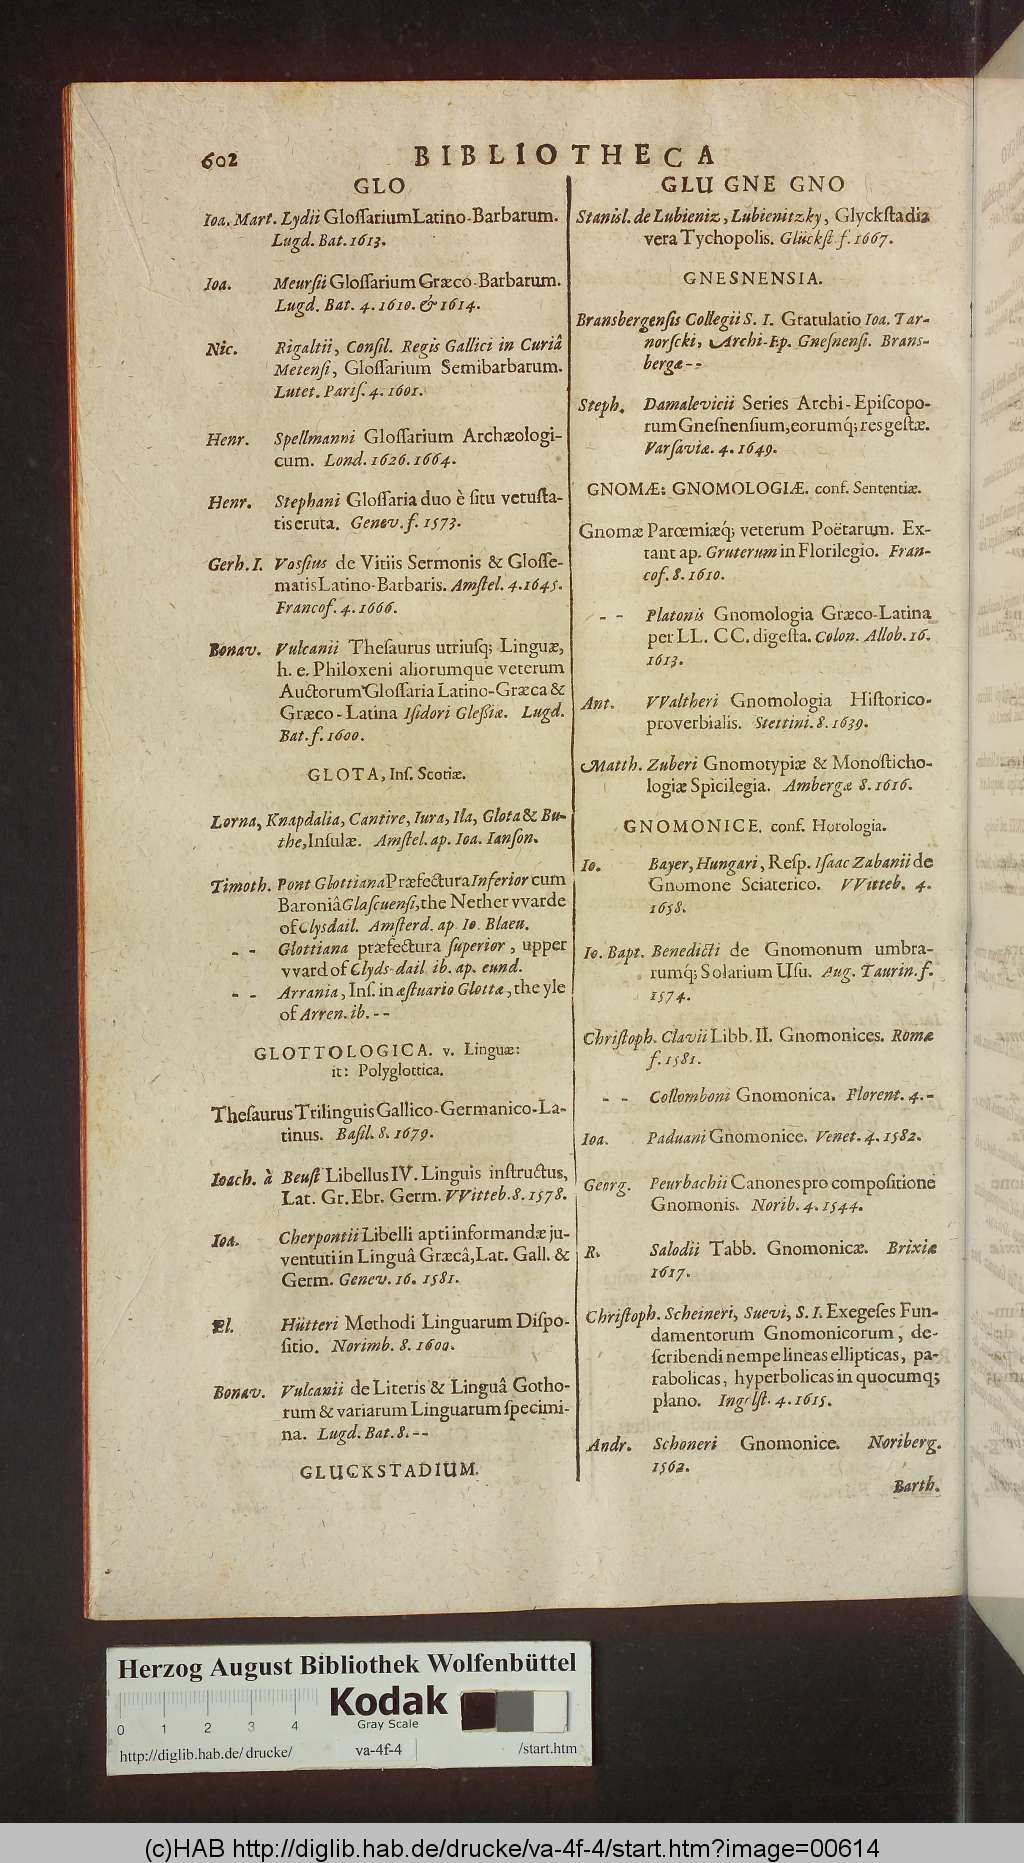 602
BIBLIOTHECA
GLO
Ioa. Mart. Lydii Gloſſarium Latino-Barbarum.
Lugd. Bat. 1613.
Ioa. Meurſii Gloſſarium Græco-Barbarum.
Lugd. Bat. 4. 1610. & 1614.
Nic. Rigaltii, Conſil. Regis Gallici in Curiâ
Metenſi, Gloſſarium Semibarbarum.
Lutet. Pariſ. 4. 1601.
Henr. Spellmanni Gloſſarium Archæologi-
cum. Lond. 1626. 1664.
Henr. Stephani Gloſſaria duo è ſitu vetuſta-
tis eruta. Genev. f. 1573.
Gerh. I. Voſſius de Vitiis Sermonis & Gloſſe-
matis Latino-Barbaris. Amſtel. 4. 1645.
Francof. 4. 1666.
Bonav. Vulcanii Theſaurus utriuſq; Linguæ,
h. e. Philoxeni aliorumque veterum
Auctorum Gloſſaria Latino-Græca &
Græco-Latina Iſidori Gleſſiæ. Lugd.
Bat. f. 1600.
GLOTA, Inſ. Scotiæ.
Lorna, Knapdalia, Cantire, Iura, Ila, Glota & Bu-
the, Inſulæ. Amſtel. ap. Ioa. Ianſon.
Timoth. Pont Glottiana Præfectura Inferior cum
Baroniâ Glaſcuenſi, the Nether vvarde
of Clysdail. Amſterd. ap. Io. Blaeu.
- - Glottiana præfectura ſuperior, upper
vvard of Clyds-dail ib. ap. eund.
- - Arrania, Inſ. in æſtuario Glottæ, the yle
of Arren. ib. - -
GLOTTOLOGICA. v. Linguæ:
it: Polyglottica.
Theſaurus Trilinguis Gallico-Germanico-La-
tinus. Baſil. 8. 1679.
Ioach. à Beuſt Libellus IV. Linguis inſtructus,
Lat. Gr. Ebr. Germ. VVitteb. 8. 1578.
Ioa. Cherpontii Libelli apti informandæ ju-
ventuti in Linguâ Græcâ, Lat. Gall. &
Germ. Genev. 16. 1581.
El. Hütteri Methodi Linguarum Diſpo-
ſitio. Norimb. 8. 1600.
Bonav. Vulcanii de Literis & Linguâ Gotho-
rum & variarum Linguarum ſpecimi-
na. Lugd. Bat. 8. - -
GLUCKSTADIUM.
GLU GNE GNO
Staniſl. de Lubieniz, Lubienitzky, Glyckſtadia
vera Tychopolis. Glückſt. f. 1667.
GNESNENSIA.
Bransbergenſis Collegii S. I. Gratulatio Ioa. Tar-
norſcki, Archi-Ep. Gneſnenſi. Brans-
bergæ - -
Steph. Damalevicii Series Archi-Epiſcopo-
rum Gneſnenſium, eorumq́; res geſtæ.
Varſaviæ. 4. 1649.
GNOMÆ: GNOMOLOGIÆ. conf. Sententiæ.
Gnomæ Parœmiæq́; veterum Poëtarum. Ex-
tant ap. Gruterum in Florilegio. Fran-
cof. 8. 1610.
- - Platonis Gnomologia Græco-Latina
per LL. CC. digeſta. Colon. Allob. 16.
1613.
Ant. VValtheri Gnomologia Hiſtorico-
proverbialis. Stettini. 8. 1639.
Matth. Zuberi Gnomotypiæ & Monoſticho-
logiæ Spicilegia. Ambergæ 8. 1616.
GNOMONICE. conf. Horologia.
Io. Bayer, Hungari, Reſp. Iſaac Zabanii de
Gnomone Sciaterico. VVitteb. 4.
1658.
Io. Bapt. Benedicti de Gnomonum umbra-
rumq́; Solarium Uſu. Aug. Taurin. f.
1574.
Chriſtoph. Clavii Libb. II. Gnomonices. Romæ
f. 1581.
- - Collomboni Gnomonica. Florent. 4. -
Ioa. Paduani Gnomonice. Venet. 4. 1582.
Georg. Peurbachii Canones pro compoſitione
Gnomonis. Norib. 4. 1544.
R. Salodii Tabb. Gnomonicæ. Brixiæ
1617.
Chriſtoph. Scheineri, Suevi, S. I. Exegeſes Fun-
damentorum Gnomonicorum, de-
ſcribendi nempe lineas ellipticas, pa-
rabolicas, hyperbolicas in quocumq;
plano. Ingolſt. 4. 1615.
Andr. Schoneri Gnomonice. Noriberg.
1562.
Barth.
Herzog August Bibliothek Wolfenbüttel
0 1 2 3 4
Kodak
Gray Scale
http://diglib.hab.de/drucke/ va-4f-4 /start.htm
(c)HAB http://diglib.hab.de/drucke/va-4f-4/start.htm?image=00614